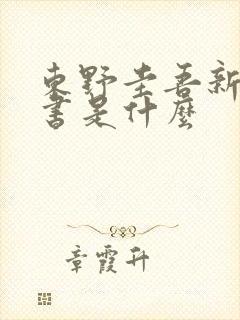 東野圭吾新
書是什麼
章霞升